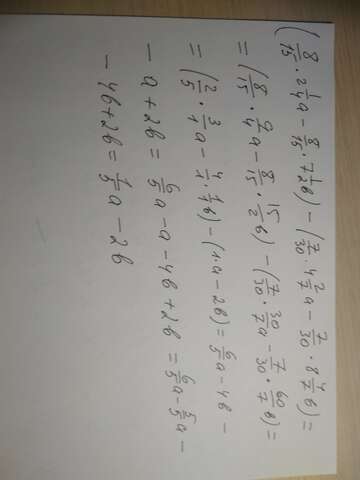 (8/15 · 2 1/4 a − 8/15 · 7 1/2 b) − (7/30 · 4 2/7 a − 7/30 · 8 4/7 b) =
= (8/15 · 9/4 a − 8/15 · 15/2 b) − (7/30 · 30/7 a − 7/30 · 60/7 b) =
= (2/5 · 3/1 a − 4/1 · 1/1 b) − (1·a − 2b) = 6/5 a − 4b −
− a + 2b = 6/5 a − a − 4b + 2b = 6/5 a − 5/5 a −
− 4b + 2b = 1/5 a − 2b